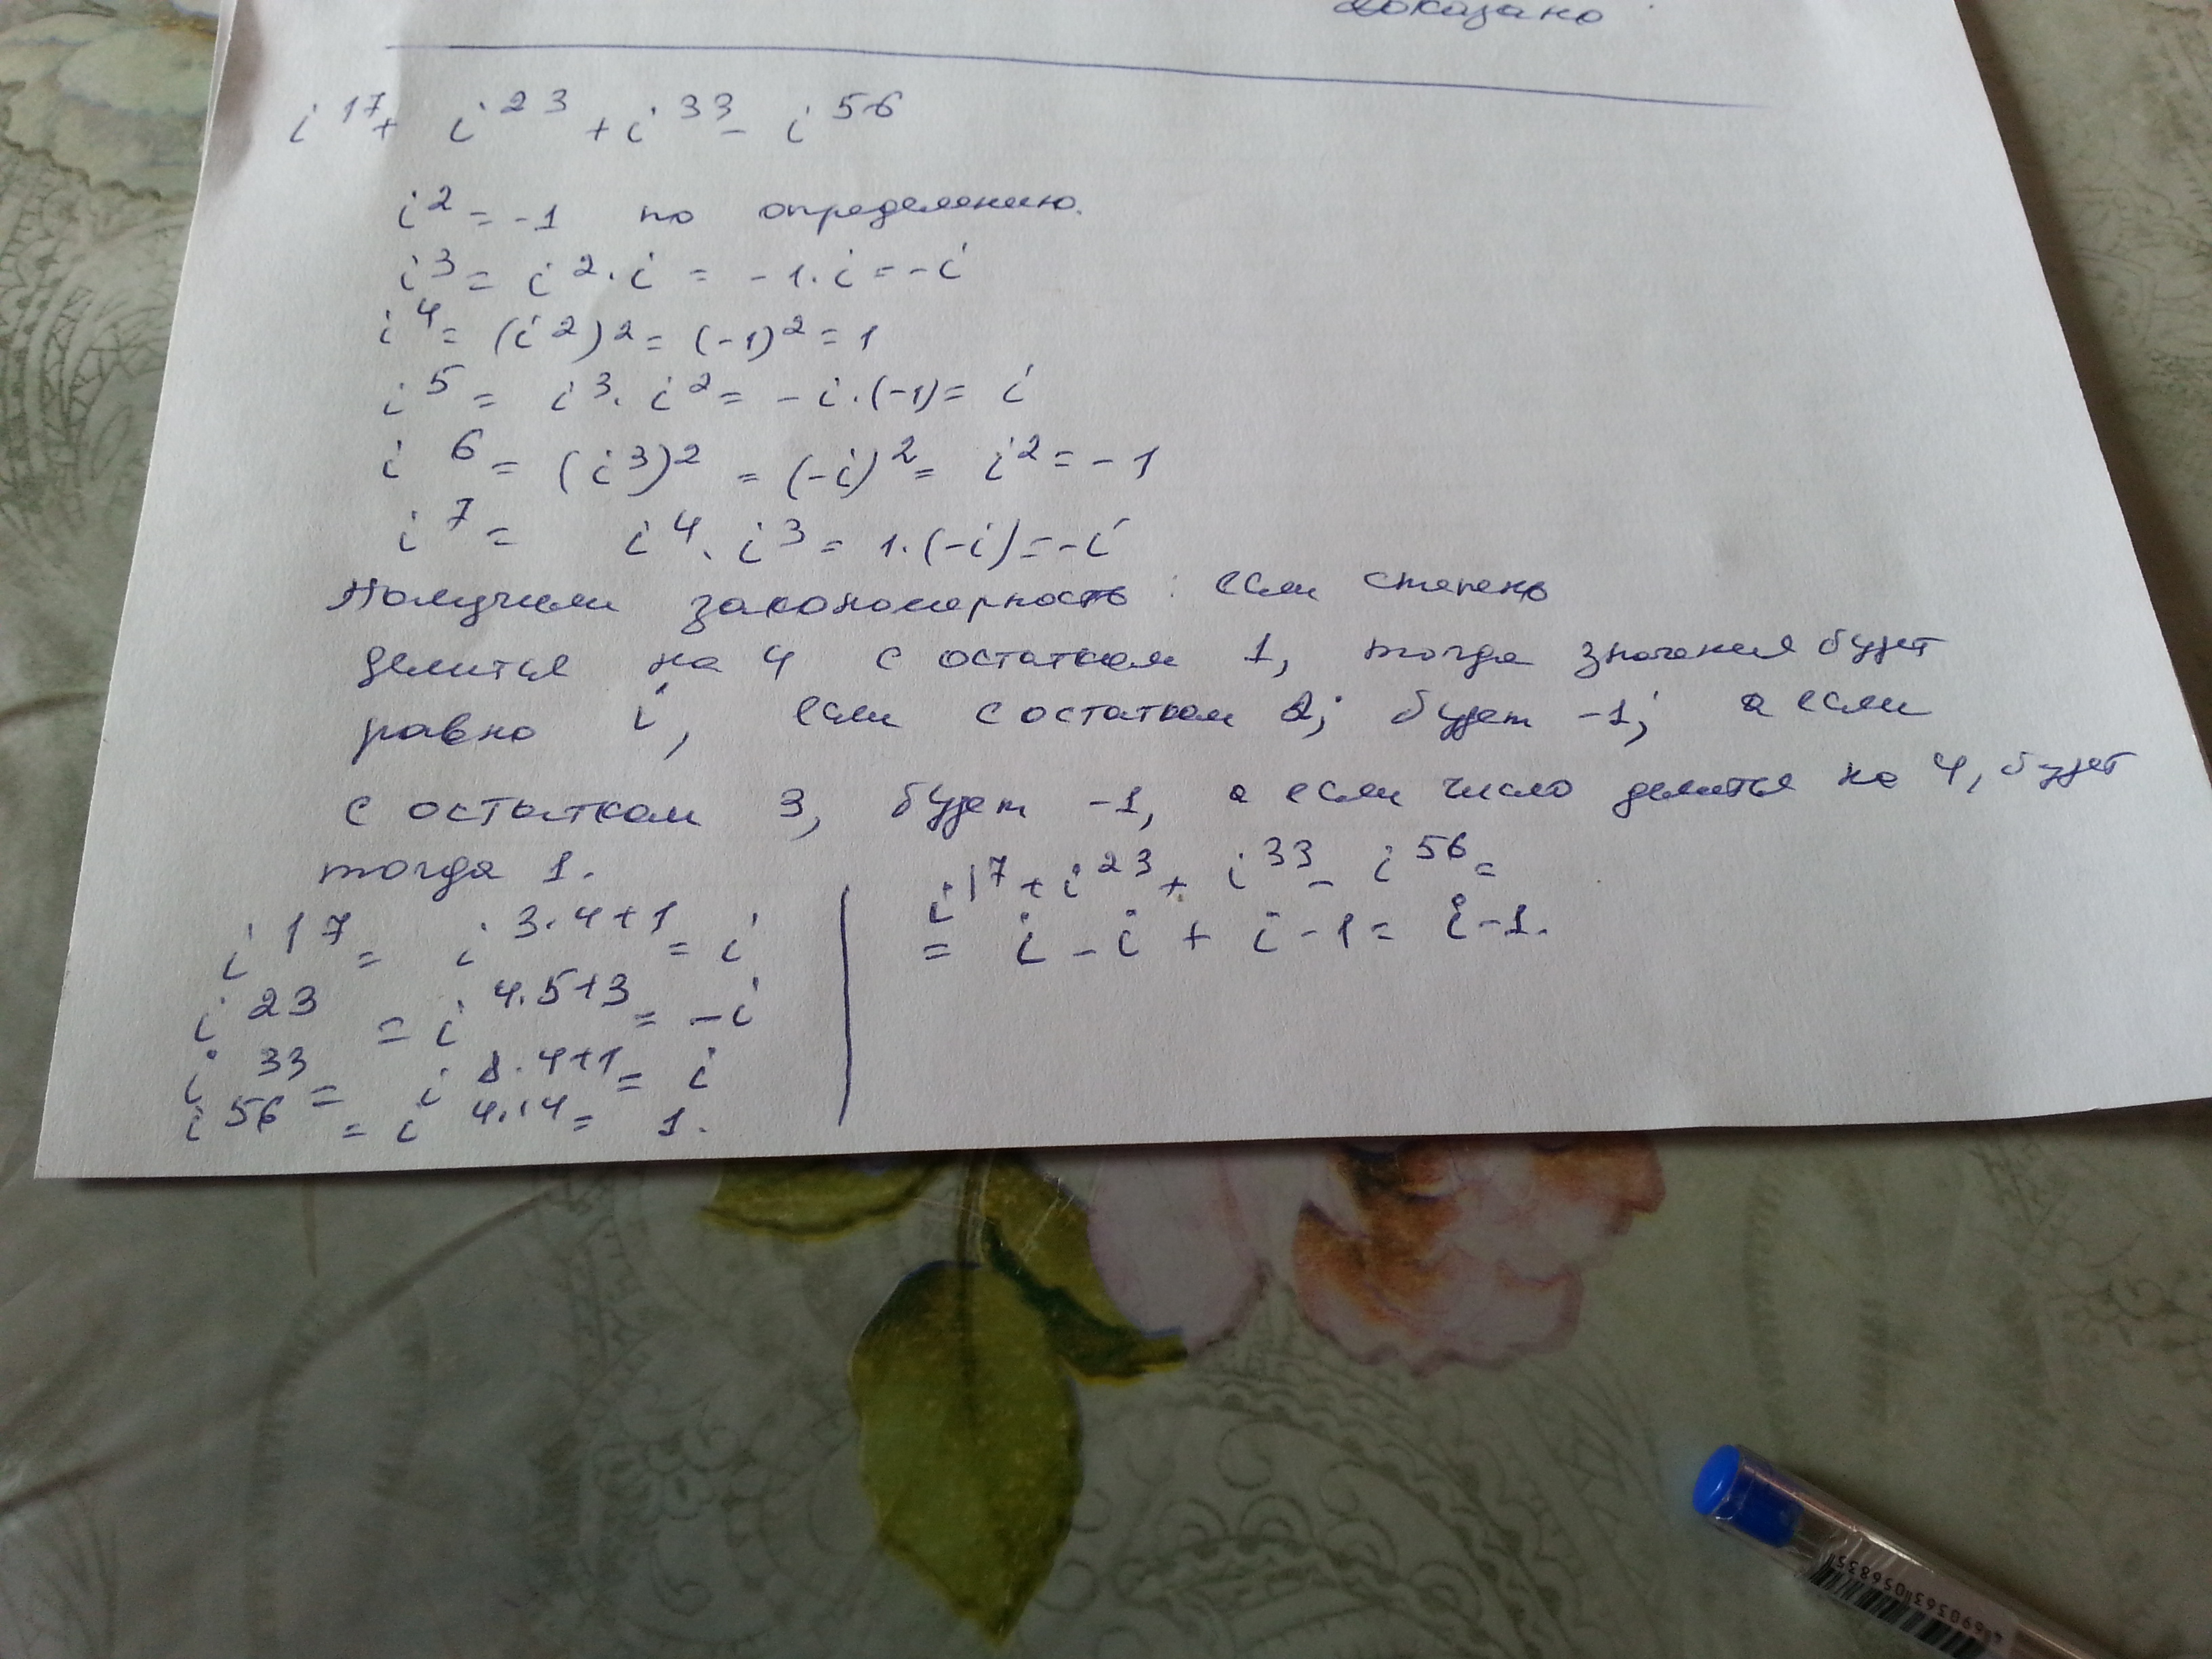 Доказано
i^17 + i^23 + i^33 - i^56
i^2 = -1 по определению.
i^3 = i^2 · i = -1 · i = -i
i^4 = (i^2)^2 = (-1)^2 = 1
i^5 = i^3 · i^2 = -i · (-1) = i
i^6 = (i^3)^2 = (-i)^2 = i^2 = -1
i^7 = i^4 · i^3 = 1 · (-i) = -i
Получили закономерность: если степень
делится на 4 с остатком 1, тогда значения будет
равно i, если с остатком 2; будет -1; а если
с остатком 3, будет -1, а если число делится на 4, будет
тогда 1.
i^17 = i^3·4+1 = i
i^23 = i^4·5+3 = -i
i^33 = i^8·4+1 = i
i^56 = i^4·14 = 1.
i^17 + i^23 + i^33 - i^56 =
= i - i + i - 1 = i - 1.